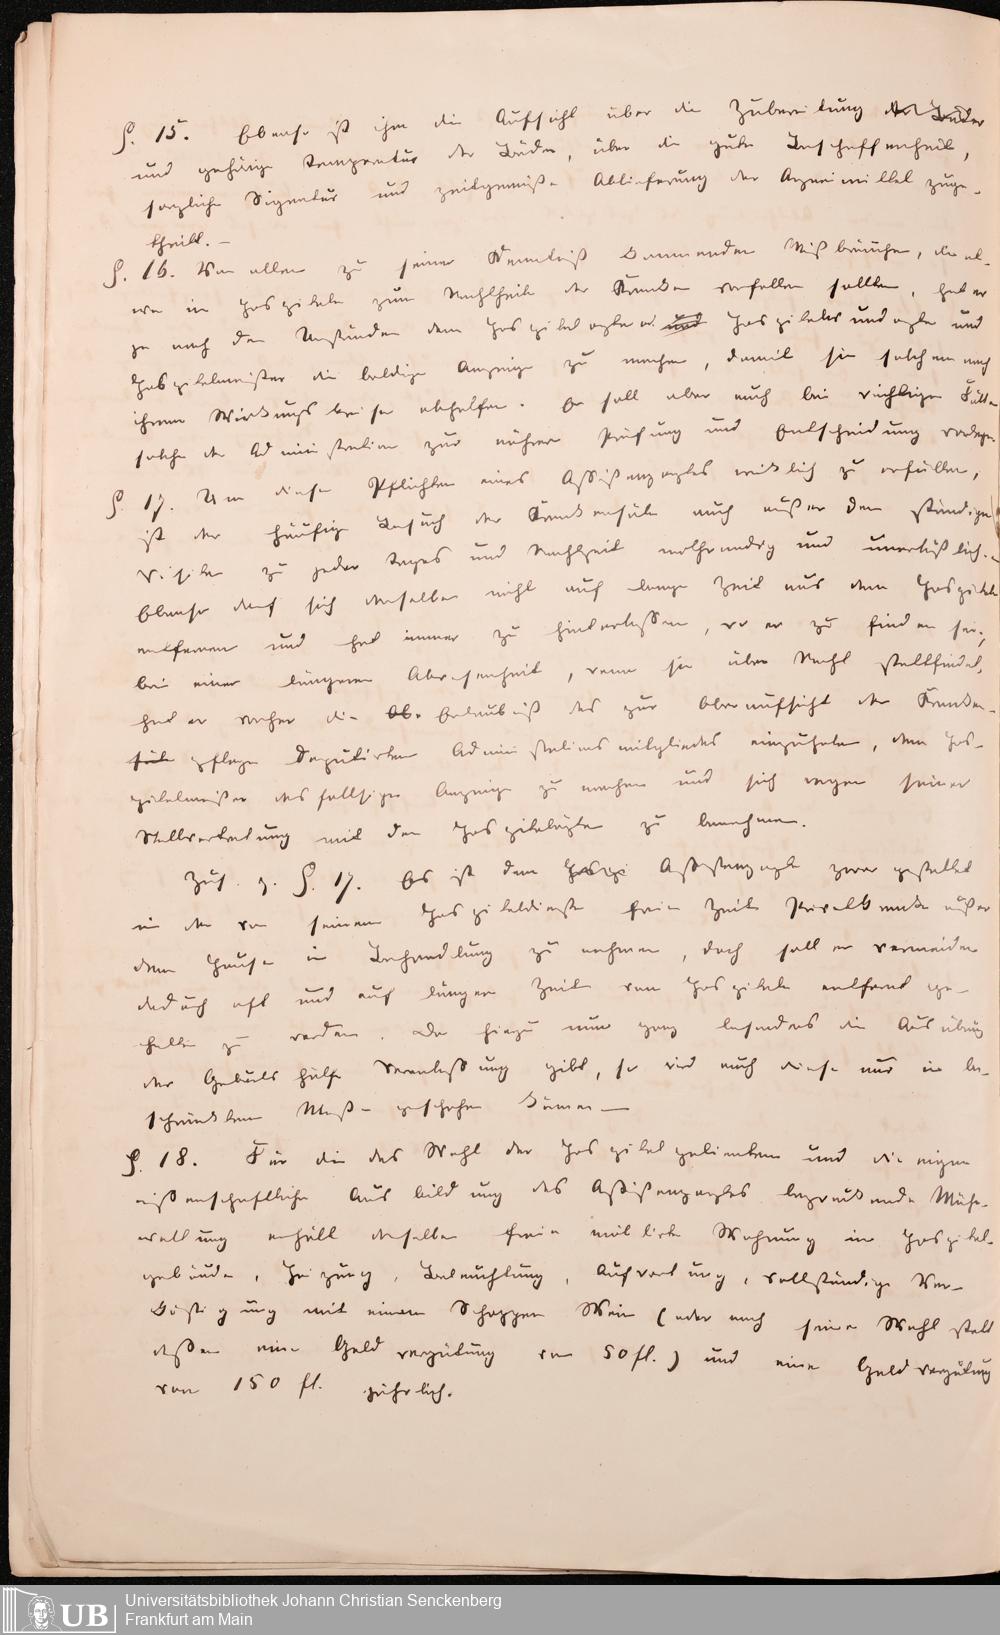 §. 15. Ebenso ist ihm die Aufsicht über die Zubereitung der Bäder
und gehörige Temperatur der Bäder, über die gute Beschaffenheit,
sorgliche Signatur und zeitgemäße Ablieferung der Arzneimittel zuge-
theilt. —
§. 16. Von allen zu seiner Kenntniß kommenden Mißbräuchen, die et-
wa im Hospitale zum Nachtheile der Kranken vorfallen sollten, hat er
je nach den Umständen dem Hospitalarzte od. und Hospitalwundarzte und
Hospitalmeister die baldige Anzeige zu machen, damit sie solchem nach
ihrem Wirkungskreise abhelfen. Er soll aber auch bei wichtigen Fällen
solche der Administration zur nähern Prüfung und Entscheidung vorlegen
§. 17. Um diese Pflichten eines Assistenzarztes wirklich zu erfüllen,
ist der häufige Besuch der Krankensäle auch außer den ständigen
Visiten zu jeder Tages und Nachtzeit nothwendig und unerläßlich.
Ebenso darf sich derselbe nicht auf lange Zeit aus dem Hospitale
entfernen und hat immer zu hinterlassen, wo er zu finden sei;
bei einer längeren Abwesenheit, wenn sie über Nacht stattfindet,
hat er vorher die Ob. Erlaubniß des zur Oberaufsicht der Kranken-
pflege deputirten Administrationsmitgliedes einzuholen, dem Hos-
pitalmeister desfallsige Anzeige zu machen und sich wegen seiner
Stellvertretung mit den Hospitalärzten zu benehmen.
Zus. z. §. 17. Es ist dem Hospi Assistenzarzte zwar gestattet
in der von seinem Hospitaldienste freien Zeit Privatkranke außer
dem Hause in Behandlung zu nehmen, doch soll er vermeiden
dadurch oft und auf längere Zeit vom Hospitale entfernt ge-
halten zu werden. Da hiezu nun ganz besonders die Ausübung
der Geburtshülfe Veranlassung gibt, so wird auch diese nur in be-
schränktem Maße geschehen können —
§. 18. Für die das Wohl der Hospitalpatienten und die eigene
wissenschaftliche Ausbildung des Assistenzarztes bezweckende Mühe-
waltung erhält derselbe freie möblirte Wohnung im Hospital-
gebäude, Heizung, Beleuchtung, Aufwartung, vollständige Ver-
köstigung mit einem Schoppen Wein (oder nach seiner Wahl statt
dessen eine Geldvergütung von 50 fl.) und eine Geldvergütung
von 150 fl. jährlich.
Universitätsbibliothek Johann Christian Senckenberg
Frankfurt am Main
UB